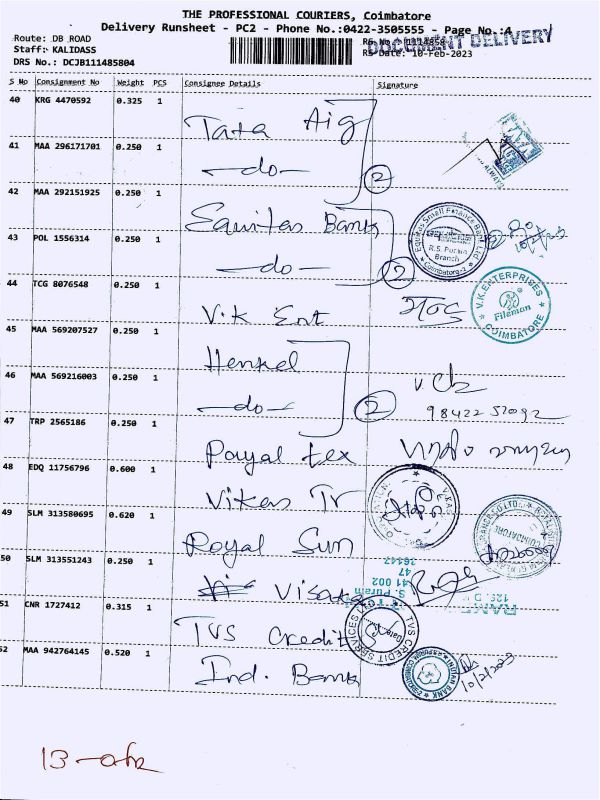 THE PROFESSIONAL COURIERS, Coimbatore
Delivery Runsheet - PC2 - Phone No.:0422-3505555 - Page No.:4
DOCUMENT DELIVERY
Route: DB ROAD
Staff: KALIDASS
RS Date: 10-Feb-2023
DRS No.: DCJB111485804
S No Consignment No Weight PCS Consignee Details Signature
40 KRG 4470592 0.325 1 Tata Aig
41 MAA 296171701 0.250 1 -do- 2
42 MAA 292151925 0.250 1 Equitas Bank
Equitas Small Finance Bank Ltd
R.S. Puram
Branch
Coimbatore-2
43 POL 1556314 0.250 1 -do- 2
44 TCG 8076548 0.250 1 V.K Ent
V.K.ENTERPRISES
Fileman
COIMBATORE
45 MAA 569207527 0.250 1 Henkel
46 MAA 569216003 0.250 1 -do- 2
47 TRP 2565186 0.250 1 Payal tex
48 EDQ 11756796 0.600 1 Vikas Tr
49 SLM 313580695 0.620 1 Royal Sun
50 SLM 313551243 0.250 1 Visaka
51 CNR 1727412 0.315 1 TVS Credit
TVS CREDIT SERVICES LTD
52 MAA 942764145 0.520 1 Ind. Bank
INDIAN BANK
10/2/2023